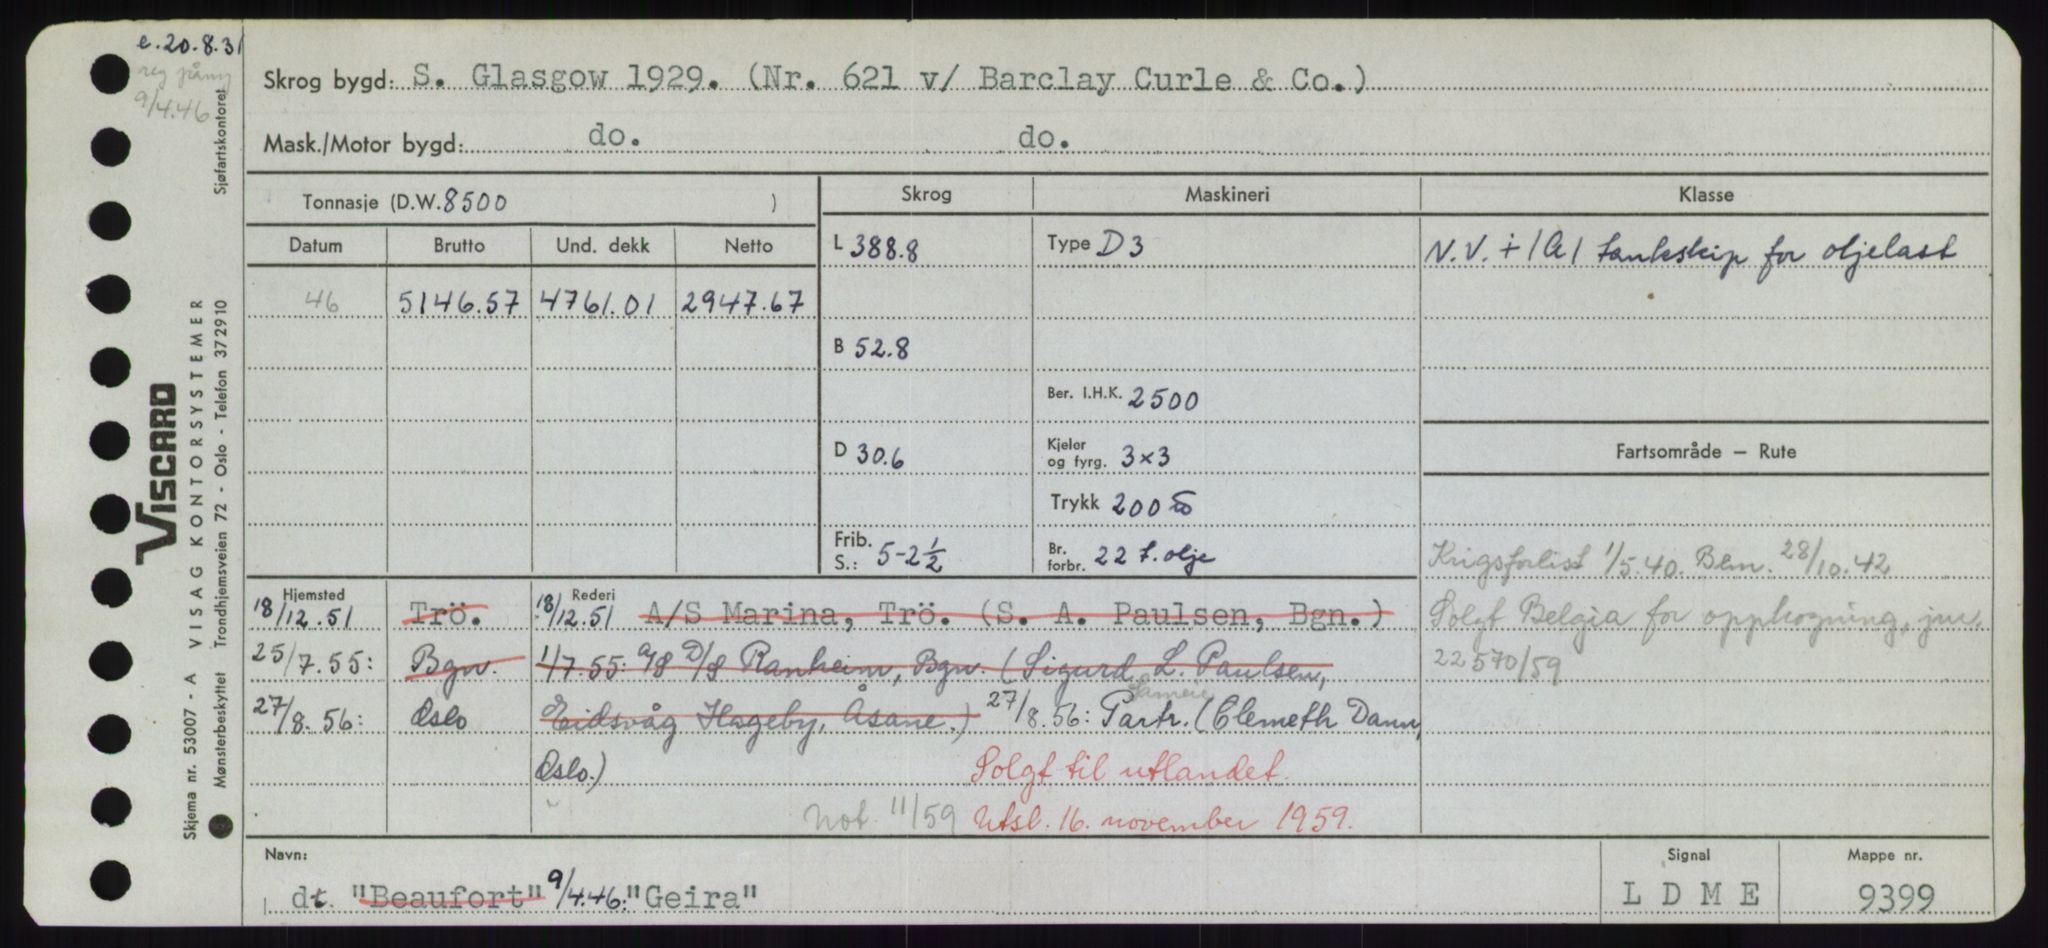 e. 20.8.31
reg påny
9/4.46
Skrog bygd: S. Glasgow 1929. (Nr. 621 v/ Barclay Curle & Co.)
Mask./Motor bygd: do. do.
Tonnasje (D.W. 8500 )
Datum Brutto Und. dekk Netto
46 5146.57 4761.01 2947.67
Skrog
L 388.8
B 52.8
D 30.6
Frib. S.: 5-2½
Maskineri
Type D 3
Ber. I.H.K. 2500
Kjeler og fyrg. 3x3
Trykk 200
Br. forbr. 22 t. olje
Klasse
N.V. + 1A1 tankskip for oljelast
Fartsområde – Rute
Krigsforlist 1/5.40. Bem. 28/10.42
Solgt Belgia for opphogning, jnr.
22570/59
Hjemsted Rederi
18/12.51 Trö. 18/12.51 A/S Marina, Trö. (S. A. Paulsen, Bgn.)
25/7.55: Bgn. 1/7.55: A/S D/S Ranheim, Bgn. (Sigurd L. Paulsen,
27/8.56: Oslo Eidsvåg Hageby, Åsane.) 27/8.56: Partr. (Clemeth Damm,
Oslo.) Solgt til utlandet.
Not. 11/59 Utsl. 16. november 1959.
Navn:
dt. "Beaufort" 9/4.46: "Geira"
Signal
L D M E
Mappe nr.
9399
Sjøfartskontoret
VISCARD
VISAG KONTORSYSTEMER
Trondhjemsveien 72 - Oslo - Telefon 372910
Skjema nr. 53007 - A
Mønsterbeskyttet